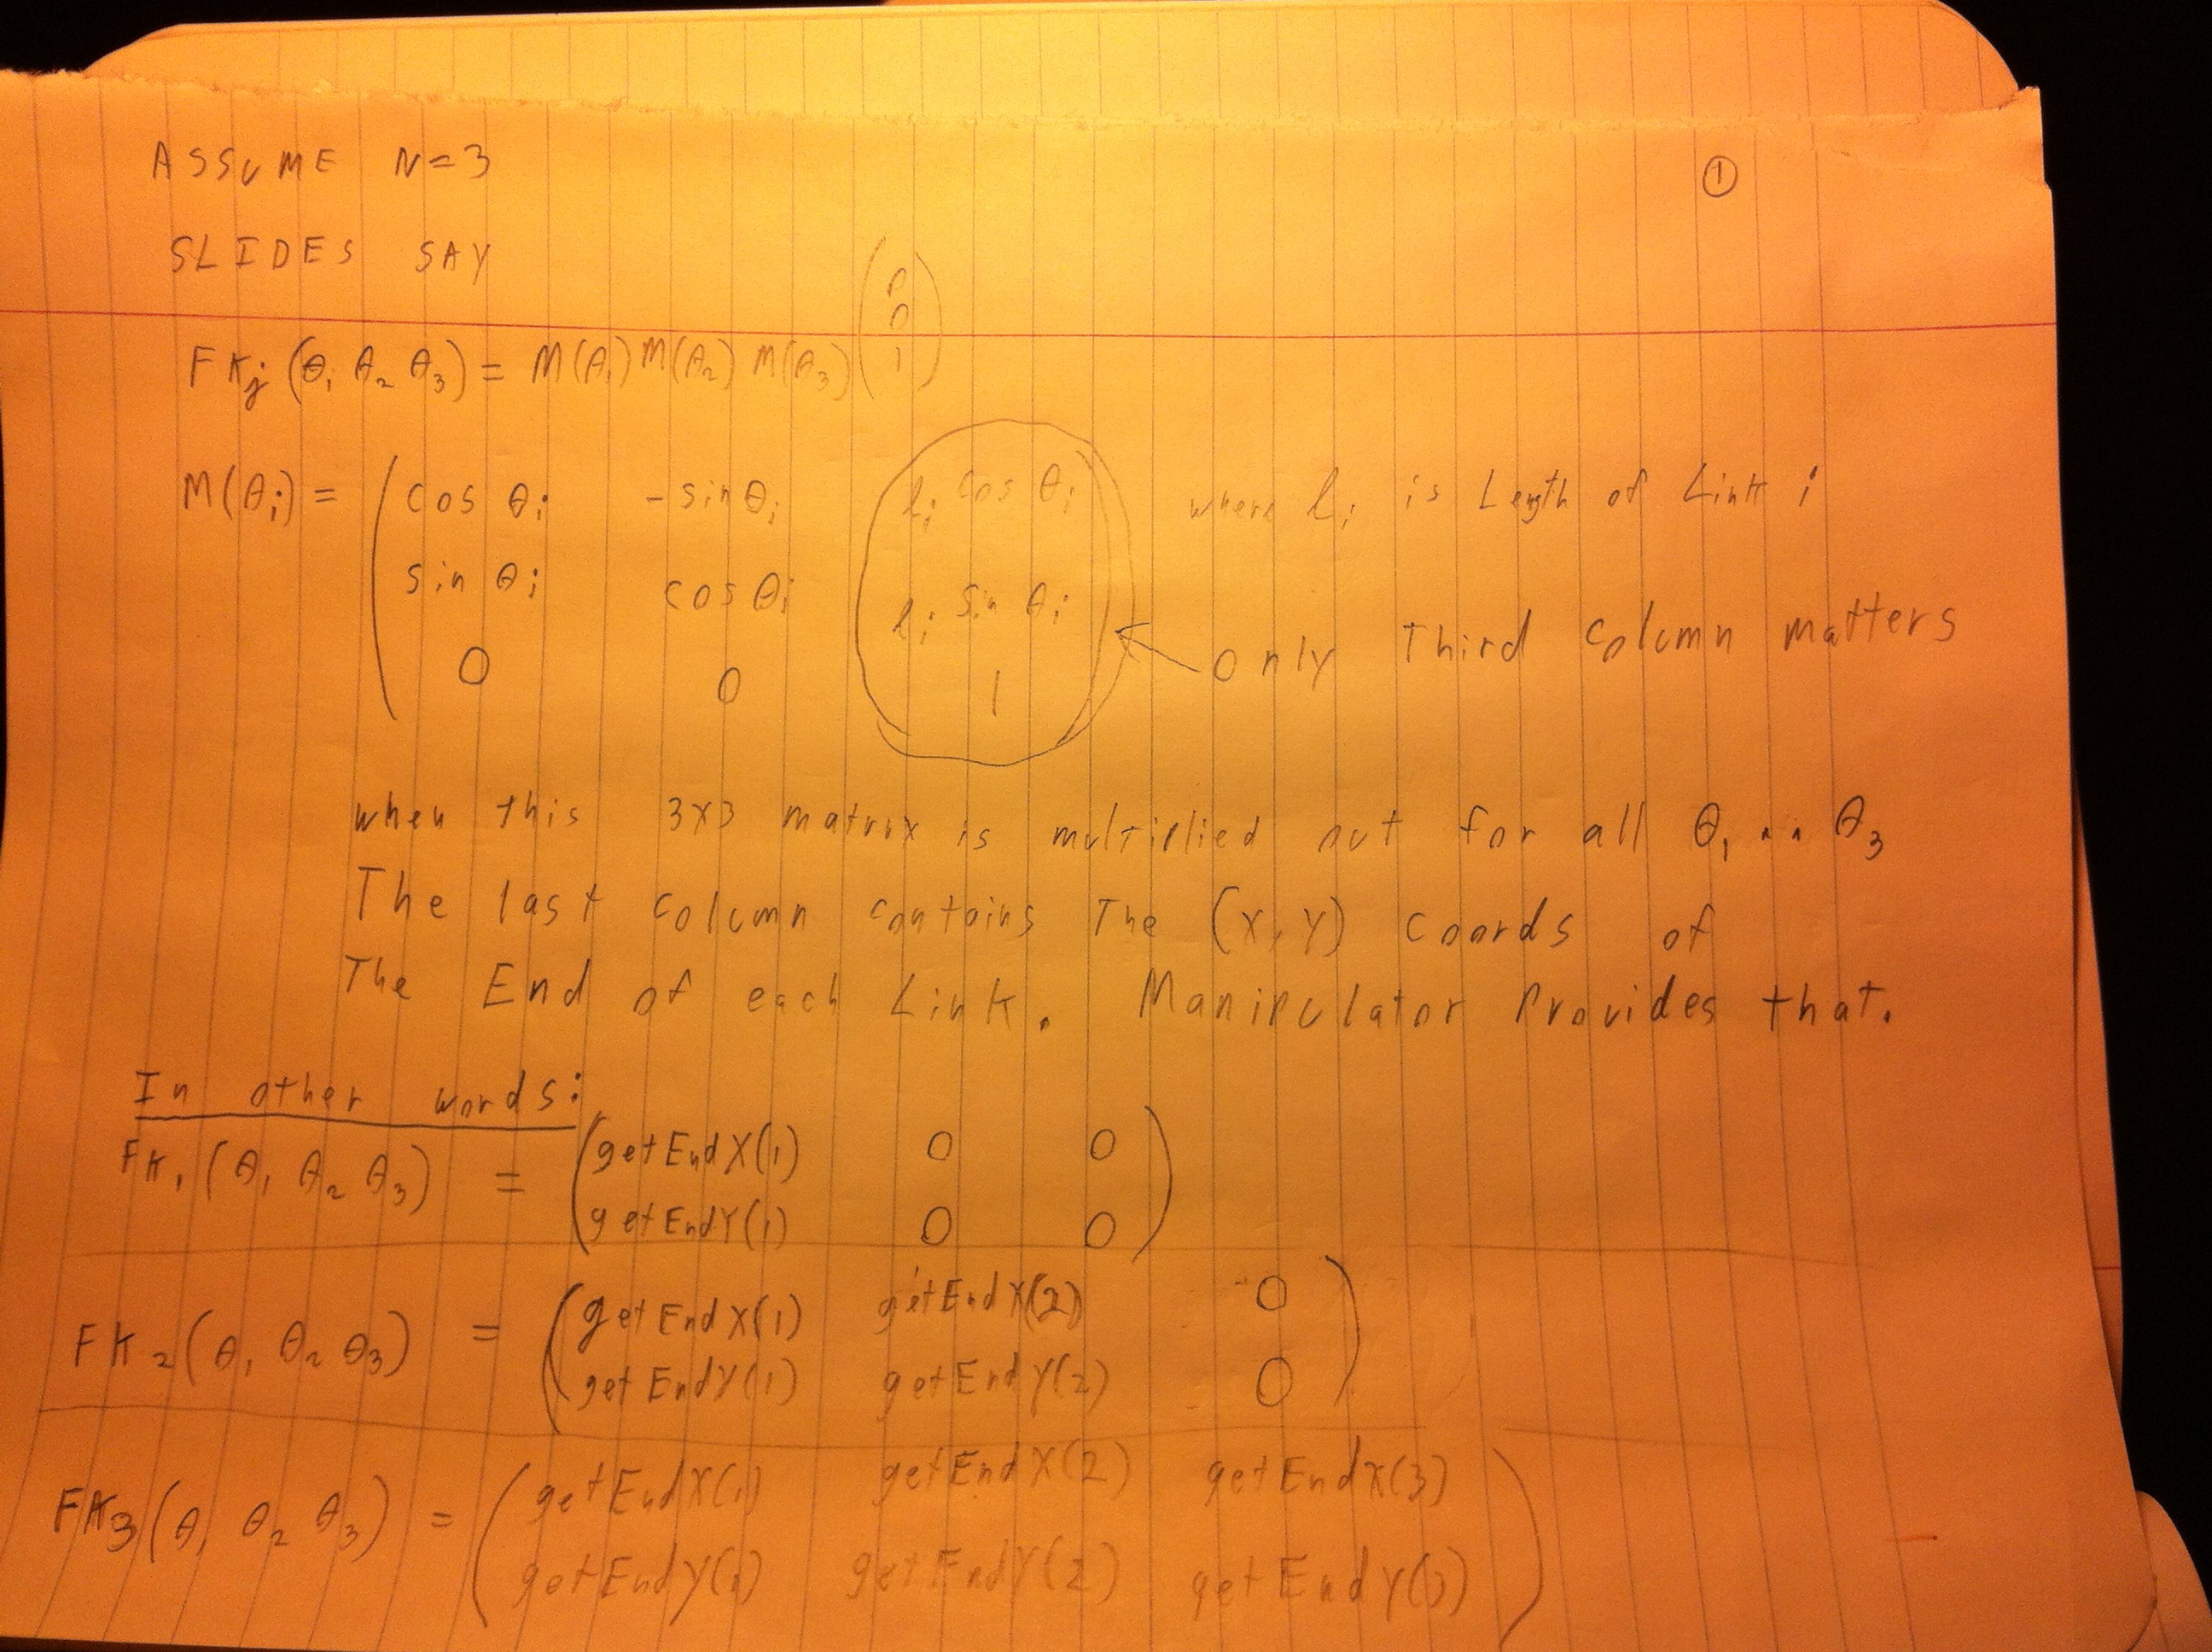 ASSUME N=3
①
SLIDES SAY
FKj (θ1 θ2 θ3) = M(θ1) M(θ2) M(θ3) (0 0 1)
M(θi) = ( cos θi   - sin θi   li cos θi   where li is Length of Link i
sin θi   cos θi   li sin θi   only Third column matters
0   0   1
when this 3x3 matrix is multiplied out for all θ1 .. θ3
The last column contains The (x, y) coords of
The End of each Link. Manipulator Provides that.
In other words:
FK1 (θ1 θ2 θ3) = ( getEndX(1)   0   0 )
getEndY(1)   0   0
FK2 (θ1 θ2 θ3) = ( getEndX(1)   getEndX(2)   0 )
getEndY(1)   getEndY(2)   0
FK3 (θ1 θ2 θ3) = ( getEndX(1)   getEndX(2)   getEndX(3) )
getEndY(1)   getEndY(2)   getEndY(3)